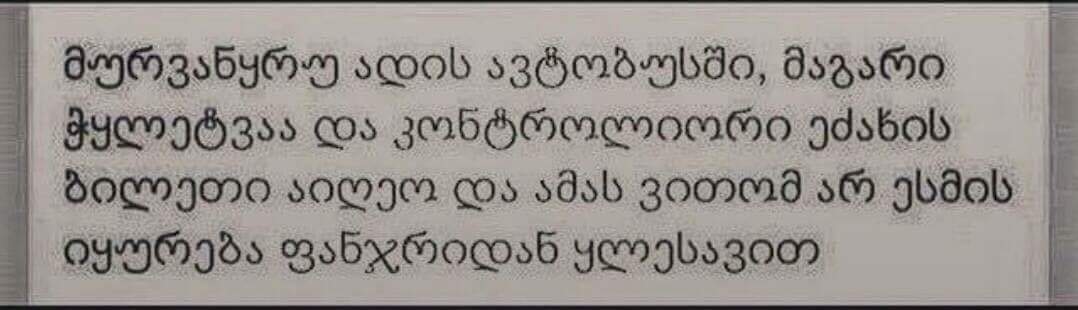 მურვანყრუ ადის ავტობუსში, მაგარი
ჭყლეტვაა და კონტროლიორი ეძახის
ბილეთი აიღეო და ამას ვითომ არ ესმის
იყურება ფანჯრიდან ყლესავით